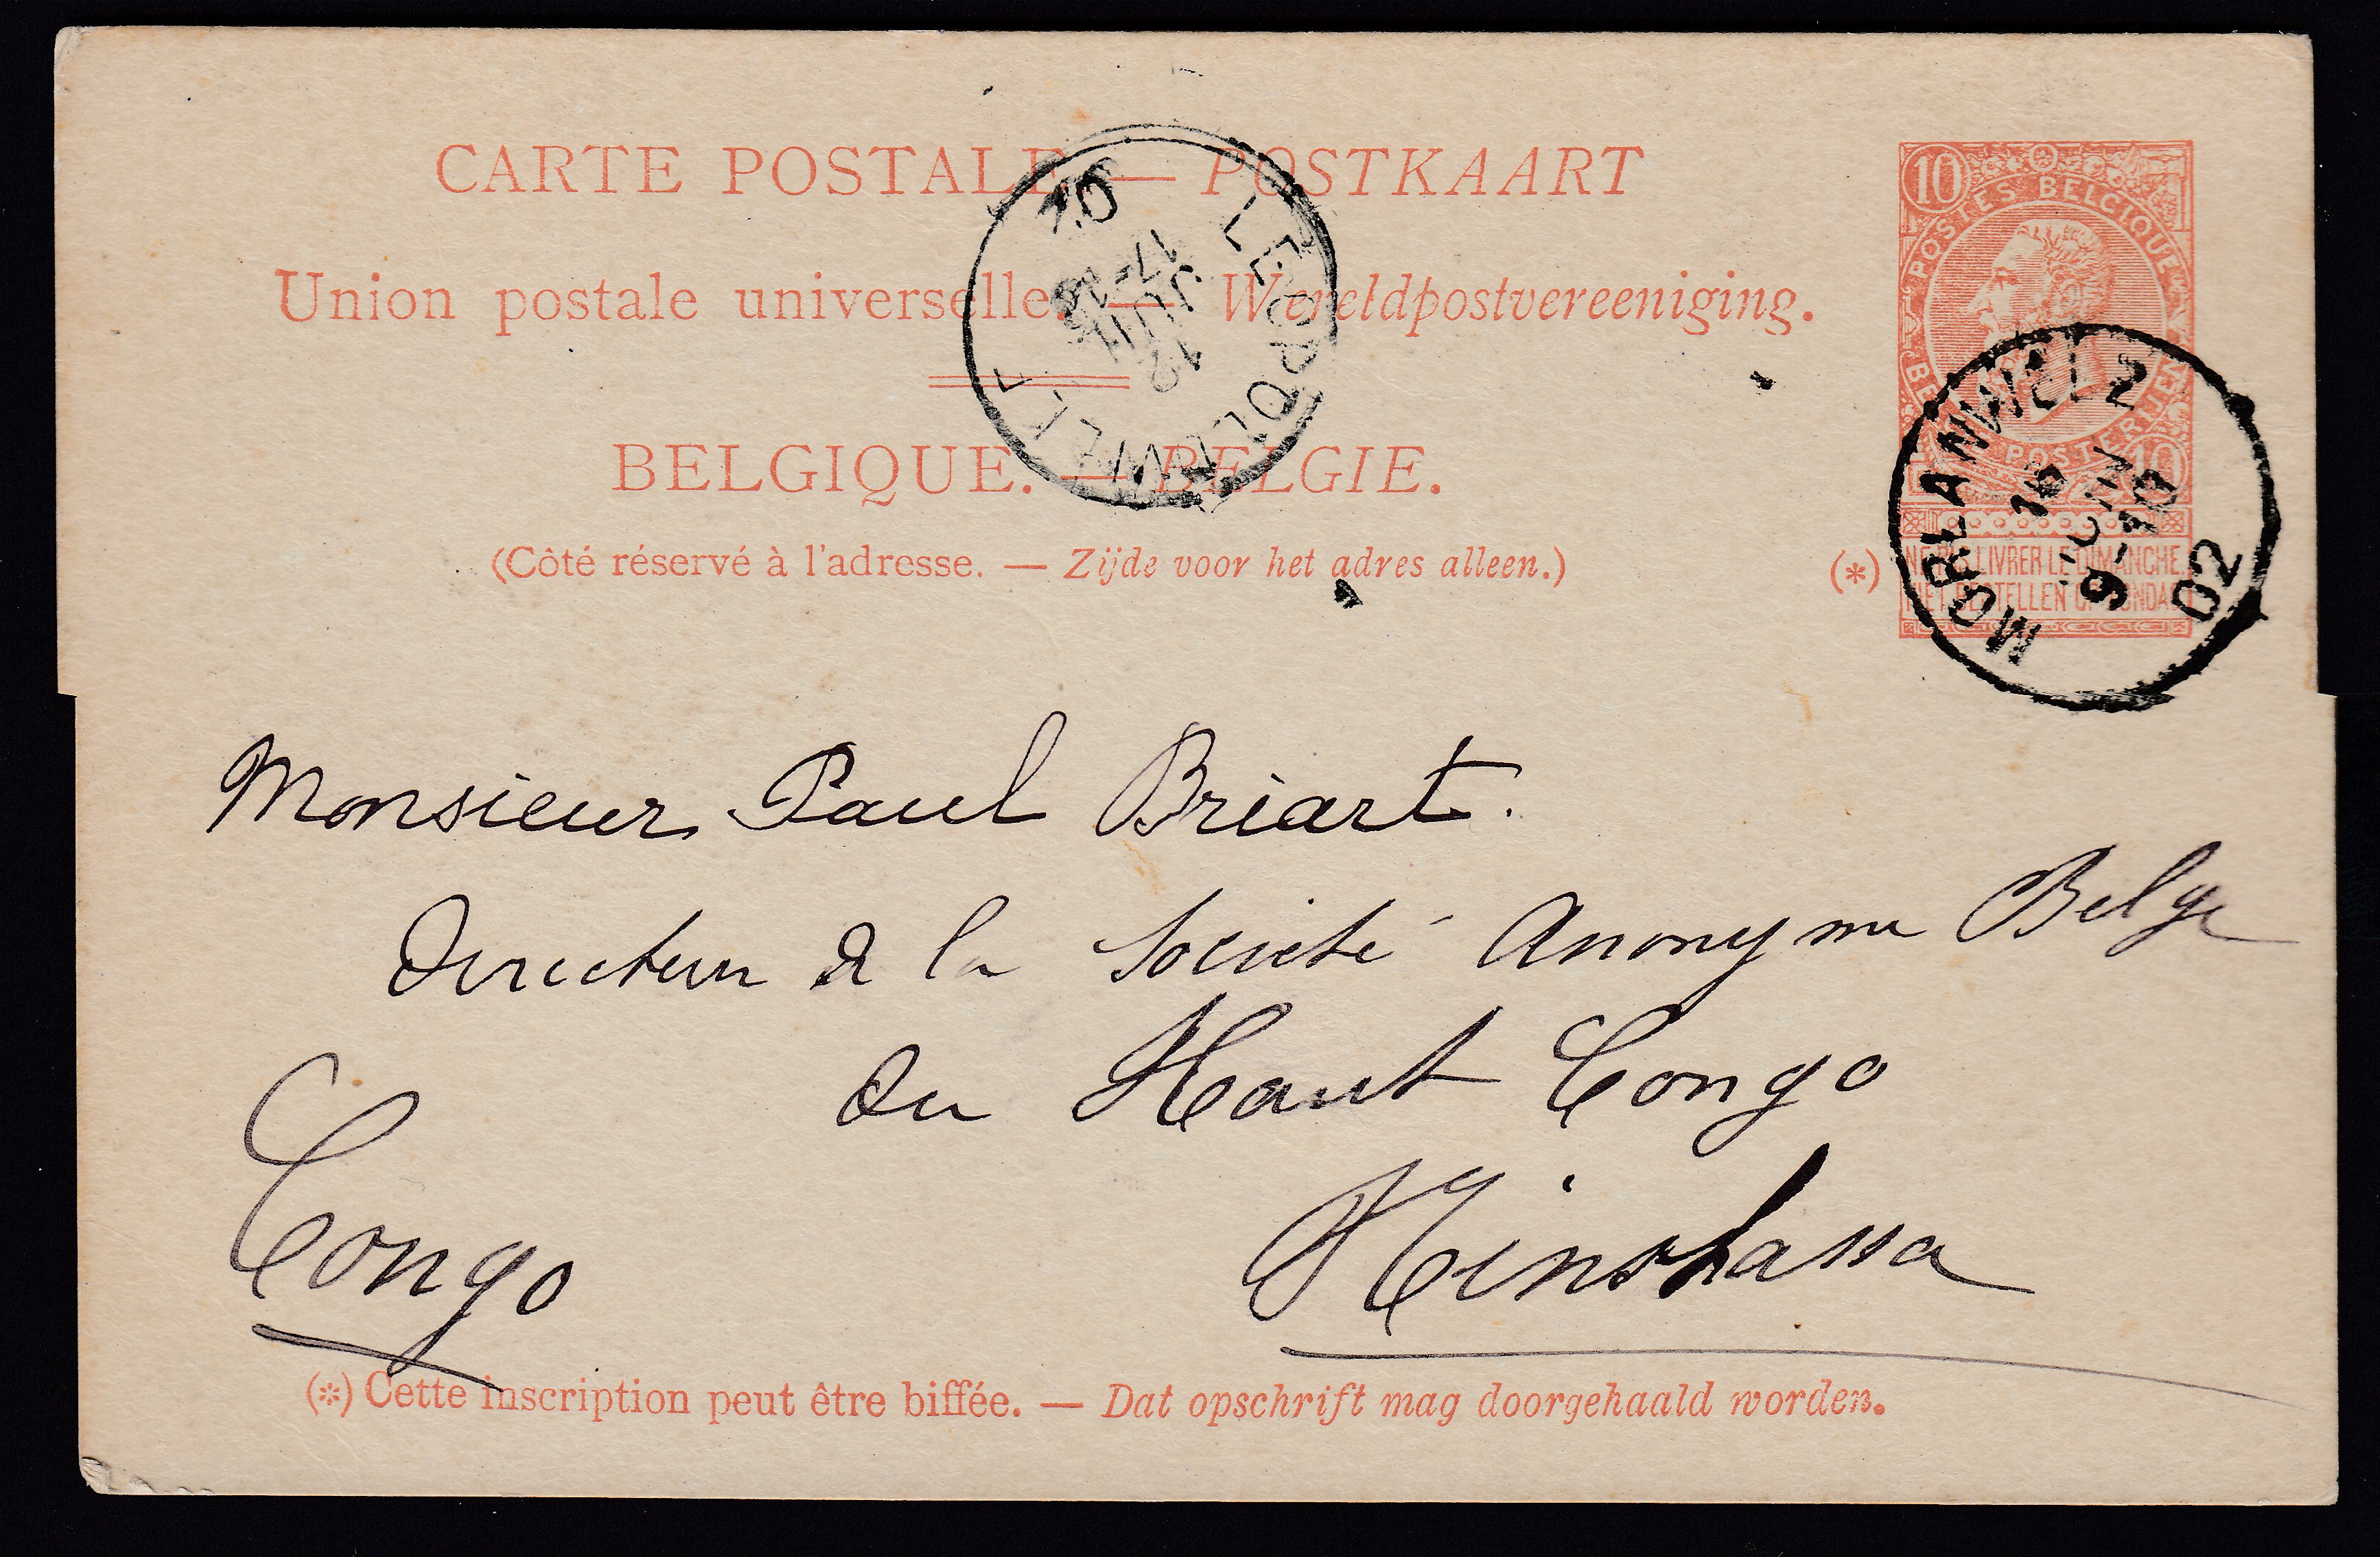 CARTE POSTALE — POSTKAART
Union postale universelle. — Wereldpostvereeniging.
BELGIQUE. — BELGIE.
(Côté réservé à l'adresse. — Zijde voor het adres alleen.)
10
POSTES BELGIQUE
POSTERIJEN
10
(*) NE PAS LIVRER LE DIMANCHE.
NIET BESTELLEN OP ZONDAG.
LEOPOLDVILLE
12
JUIL
02
MORLANWELZ
16
JUIN
9-10
02
Monsieur Paul Briart.
Directeur de la Société Anonyme Belge
du Haut Congo
Kinshassa
Congo
(*) Cette inscription peut être biffée. — Dat opschrift mag doorgehaald worden.